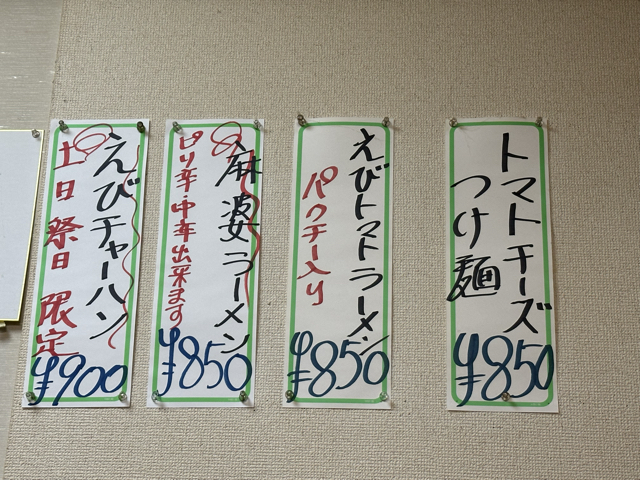 トマトチーズ
つけ麺
¥850
えびトマトラーメン
パクチー入り
¥850
麻婆ラーメン
ピリ辛・中辛出来ます
¥850
えびチャーハン
土日祭日限定
¥900